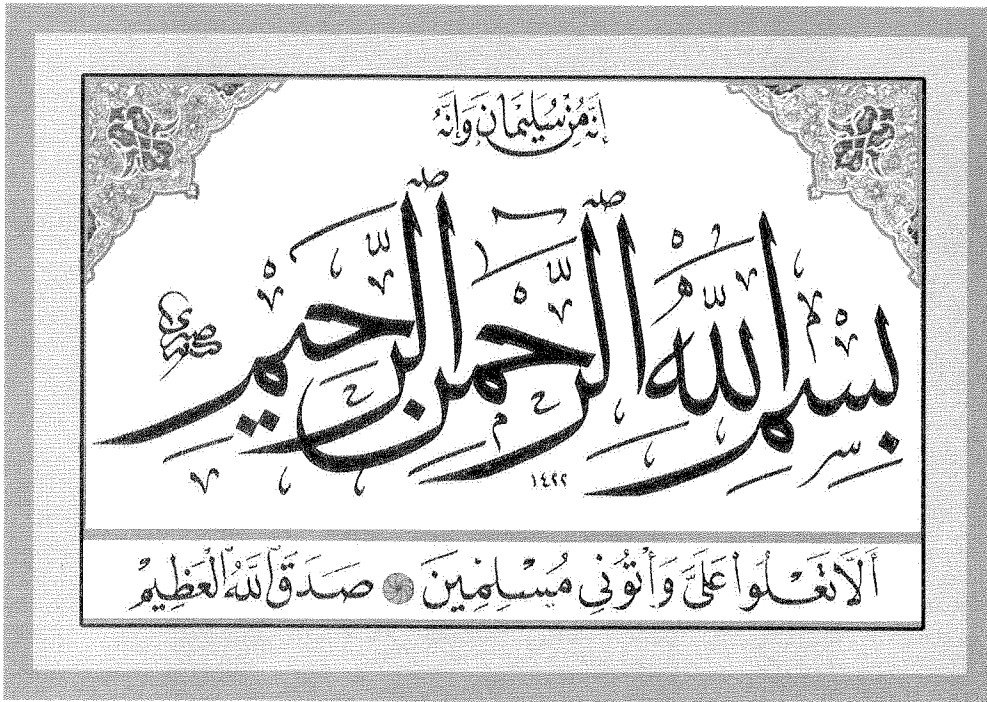 إِنَّهُ مِنْ سُلَيْمَانَ وَإِنَّهُ
بِسْمِ اللَّهِ الرَّحْمَنِ الرَّحِيمِ
١٤٢٢
أَلَّا تَعْلُوا عَلَيَّ وَأْتُونِي مُسْلِمِينَ صَدَقَ اللَّهُ الْعَظِيمُ